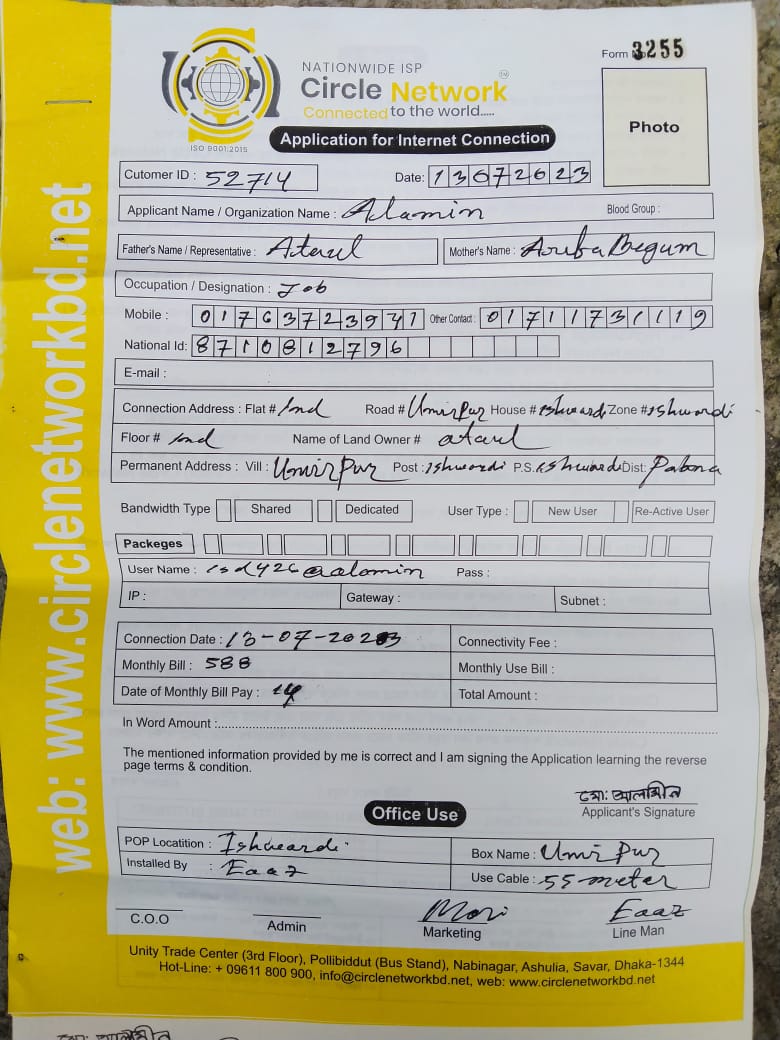 NATIONWIDE ISP
Circle Network
Connected to the world.....
ISO 9001:2015
Form No 3255
Photo
Application for Internet Connection
Cutomer ID : 52714 Date: 13072023
Applicant Name / Organization Name : Alamin Blood Group :
Father's Name / Representative : Ataul Mother's Name : Arifa Begum
Occupation / Designation : Job
Mobile : 01763723941 Other Contact : 01711731119
National Id: 8710812796
E-mail :
Connection Address : Flat # Ind Road # UmirPur House # ishwardi Zone # ishwardi
Floor # Ind Name of Land Owner # ataul
Permanent Address : Vill : UmirPur Post : Ishwardi P.S. ishwardi Dist: Pabna
Bandwidth Type Shared Dedicated User Type : New User Re-Active User
Packeges
User Name : isd426@alomin Pass :
IP : Gateway : Subnet :
Connection Date : 13-07-2023 Connectivity Fee :
Monthly Bill : 588 Monthly Use Bill :
Date of Monthly Bill Pay : 14 Total Amount :
In Word Amount :
The mentioned information provided by me is correct and I am signing the Application learning the reverse
page terms & condition.
মো: আলামীন
Applicant's Signature
Office Use
POP Locatition : Ishwardi Box Name : UmirPur
Installed By : Eaaz Use Cable : 55 meter
Moni Eaaz
C.O.O Admin Marketing Line Man
Unity Trade Center (3rd Floor), Pollibiddut (Bus Stand), Nabinagar, Ashulia, Savar, Dhaka-1344
Hot-Line: + 09611 800 900, info@circlenetworkbd.net, web: www.circlenetworkbd.net
web: www.circlenetworkbd.net
মো: আলামীন